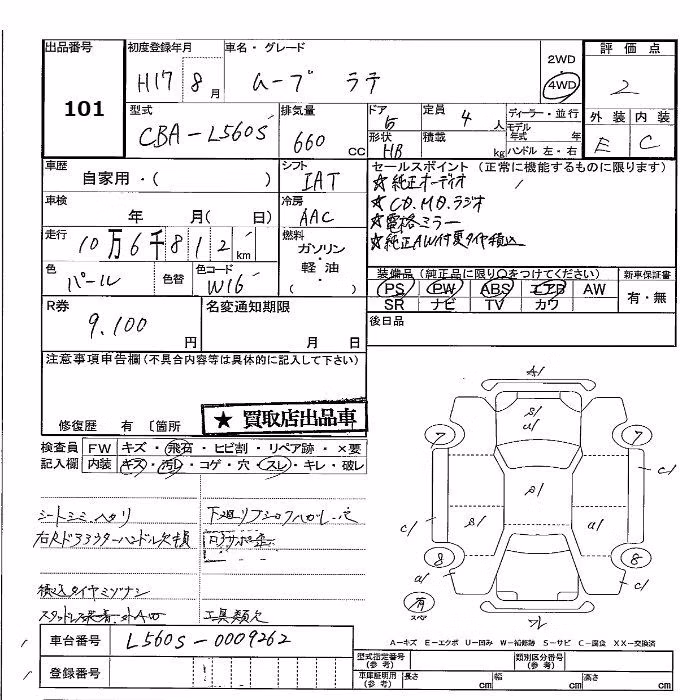 出品番号 初度登録年月 車名・グレード 2WD 評価点
101 H17 8月 ムーブ ラテ 4WD 2
型式 排気量 ドア 定員 ディーラー・並行 外装 内装
CBA-L560S 660 cc 5 4人 モデル年式 年 E C
形状 HB 積載 kg ハンドル 左・右
車歴 自家用・( ) シフト IAT セールスポイント (正常に機能するものに限ります)
★純正オーディオ
車検 年 月( 日) 冷房 AAC ★CD.MD.ラジオ
★電格ミラー
走行 10万6千812km 燃料 ガソリン・軽油・( ) ★純正AW付夏タイヤ積込
色 パール 色替 色コード W16 装備品 (純正品に限り○をつけてください) 新車保証書
PS PW ABS エアB AW 有・無
SR ナビ TV カワ
R券 9.100円 名変通知期限 月 日 後日品
注意事項申告欄 (不具合内容等は具体的に記入して下さい)
修復歴 有 〔箇所
★ 買取店出品車
検査員記入欄 FW キズ・飛石・ヒビ割・リペア跡・×要
内装 キズ・汚レ・コゲ・穴・スレ・キレ・破レ
シートシミ.ヘタリ
右Rドアアウターハンドル欠損
積込タイヤミゾナシ
工具類欠
A1
S1
U1
7 7
S1
C1 C1
S1 a1
8 8
a1 C1
有
スペア
A-キズ E-エクボ U-凹み W-補修跡 S-サビ C-腐食 XX-交換済
車台番号 L560S-0009262
登録番号
型式指定番号(参考) 類別区分番号(参考)
車庫証明用(参考) 長さ cm 幅 cm 高さ cm